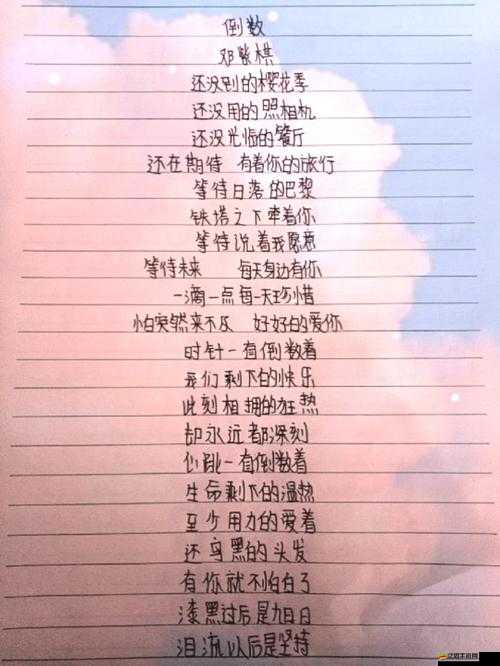 倒数
邓紫棋
还没到的樱花季
还没用的照相机
还没光临的餐厅
还在期待 有着你的旅行
等待日落的巴黎
铁塔之下牵着你
等待说着我愿意
等待未来 每天身边有你
一滴一点每一天珍惜
怕突然来不及 好好的爱你
时针一有倒数着
我们剩下的快乐
此刻相拥的狂热
却永远都深刻
心跳一有倒数着
生命剩下的温热
至少用力的爱着
还乌黑的头发
有你就不怕白了
漆黑过后是旭日
泪流以后是坚持